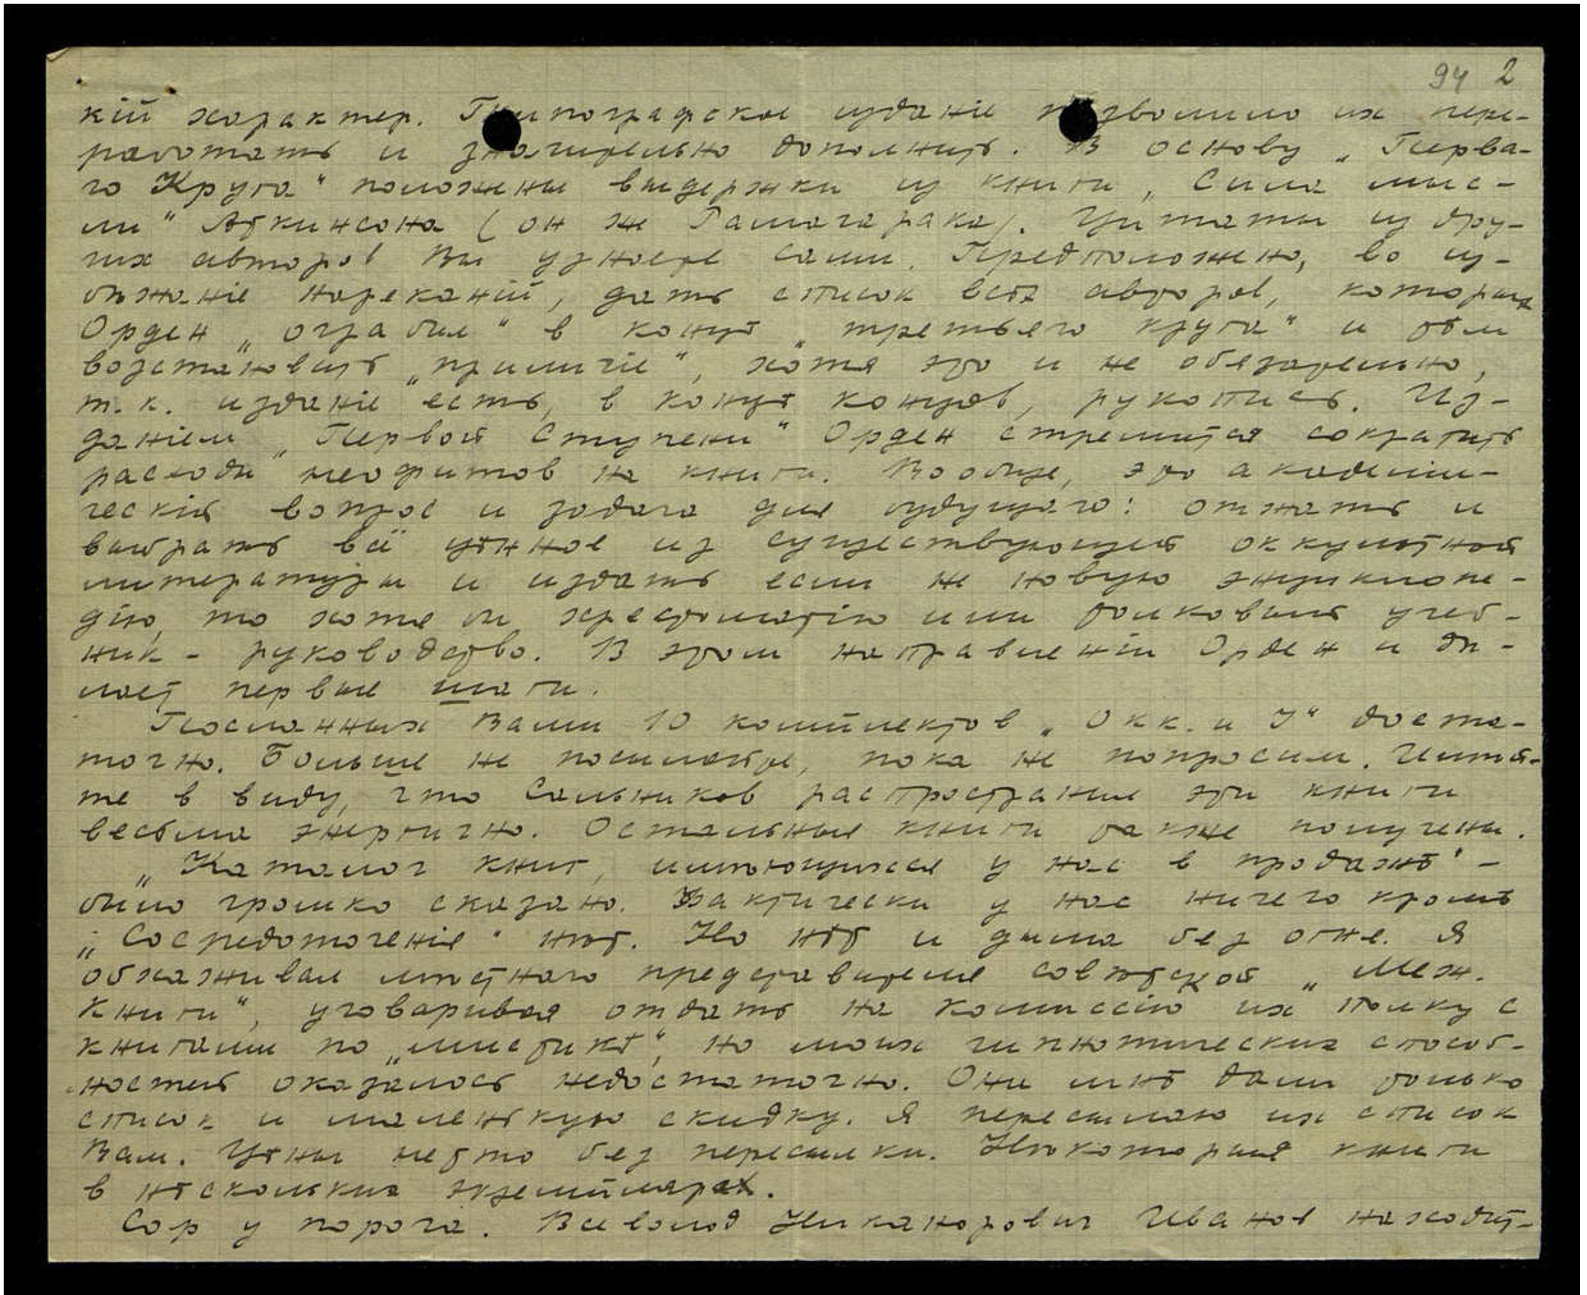 94 2
кій характер. Типографское изданіе позволило их пере-
работать и значительно дополнить. В основу „Перва-
го Круга“ положены выдержки из книги „Сила мыс-
ли“ Аткинсона (он же Рамачарака). Цитаты из дру-
гих авторов Вы узнаете сами. Предположено, во из-
бѣжаніе нареканій, дать список всѣх авторов, которых
Орден „ограбил“ в концѣ „третьяго круга“ и тѣм
возстановить „приличіе“, хотя это и не обязательно,
т.к. изданіе есть, в концѣ концов, рукопись. Из-
даніем „Первой Ступени“ Орден стремится сократить
расходы неофитов на книги. Вообще, это академи-
ческій вопрос и задача для будущаго: отжать и
выбрать всё цѣнное из существующей оккультной
литературы и издать если не новую энциклопе-
дію, то хотя бы хрестоматію или толковый учеб-
ник - руководство. В этом направленіи Орден и дѣ-
лает первые шаги.
Посланных Вами 10 комплектов „Окк. и І“ доста-
точно. Больше не посылайте, пока не попросим. Имѣй-
те в виду, что Сальников распространил эти книги
весьма энергично. Остальныя книги также получены.
„Каталог книг, имѣющихся у нас в продажѣ“ -
было громко сказано. Фактически у нас ничего кромѣ
„Сосредоточенія“ нѣт. Но нѣт и дыма без огня. Я
обхаживал мѣстнаго представителя совѣтской „Меж.
Книги“, уговаривая отдать на комиссію их полку с
книгами по „мистикѣ“, но моих гипнотических способ-
ностей оказалось недостаточно. Они мнѣ дали только
список и маленькую скидку. Я пересылаю их список
Вам. Цѣны нетто без пересылки. Нѣкоторыя книги
в нѣскольких экземплярах.
Сор у порога. Всеволод Никанорович Иванов находит-